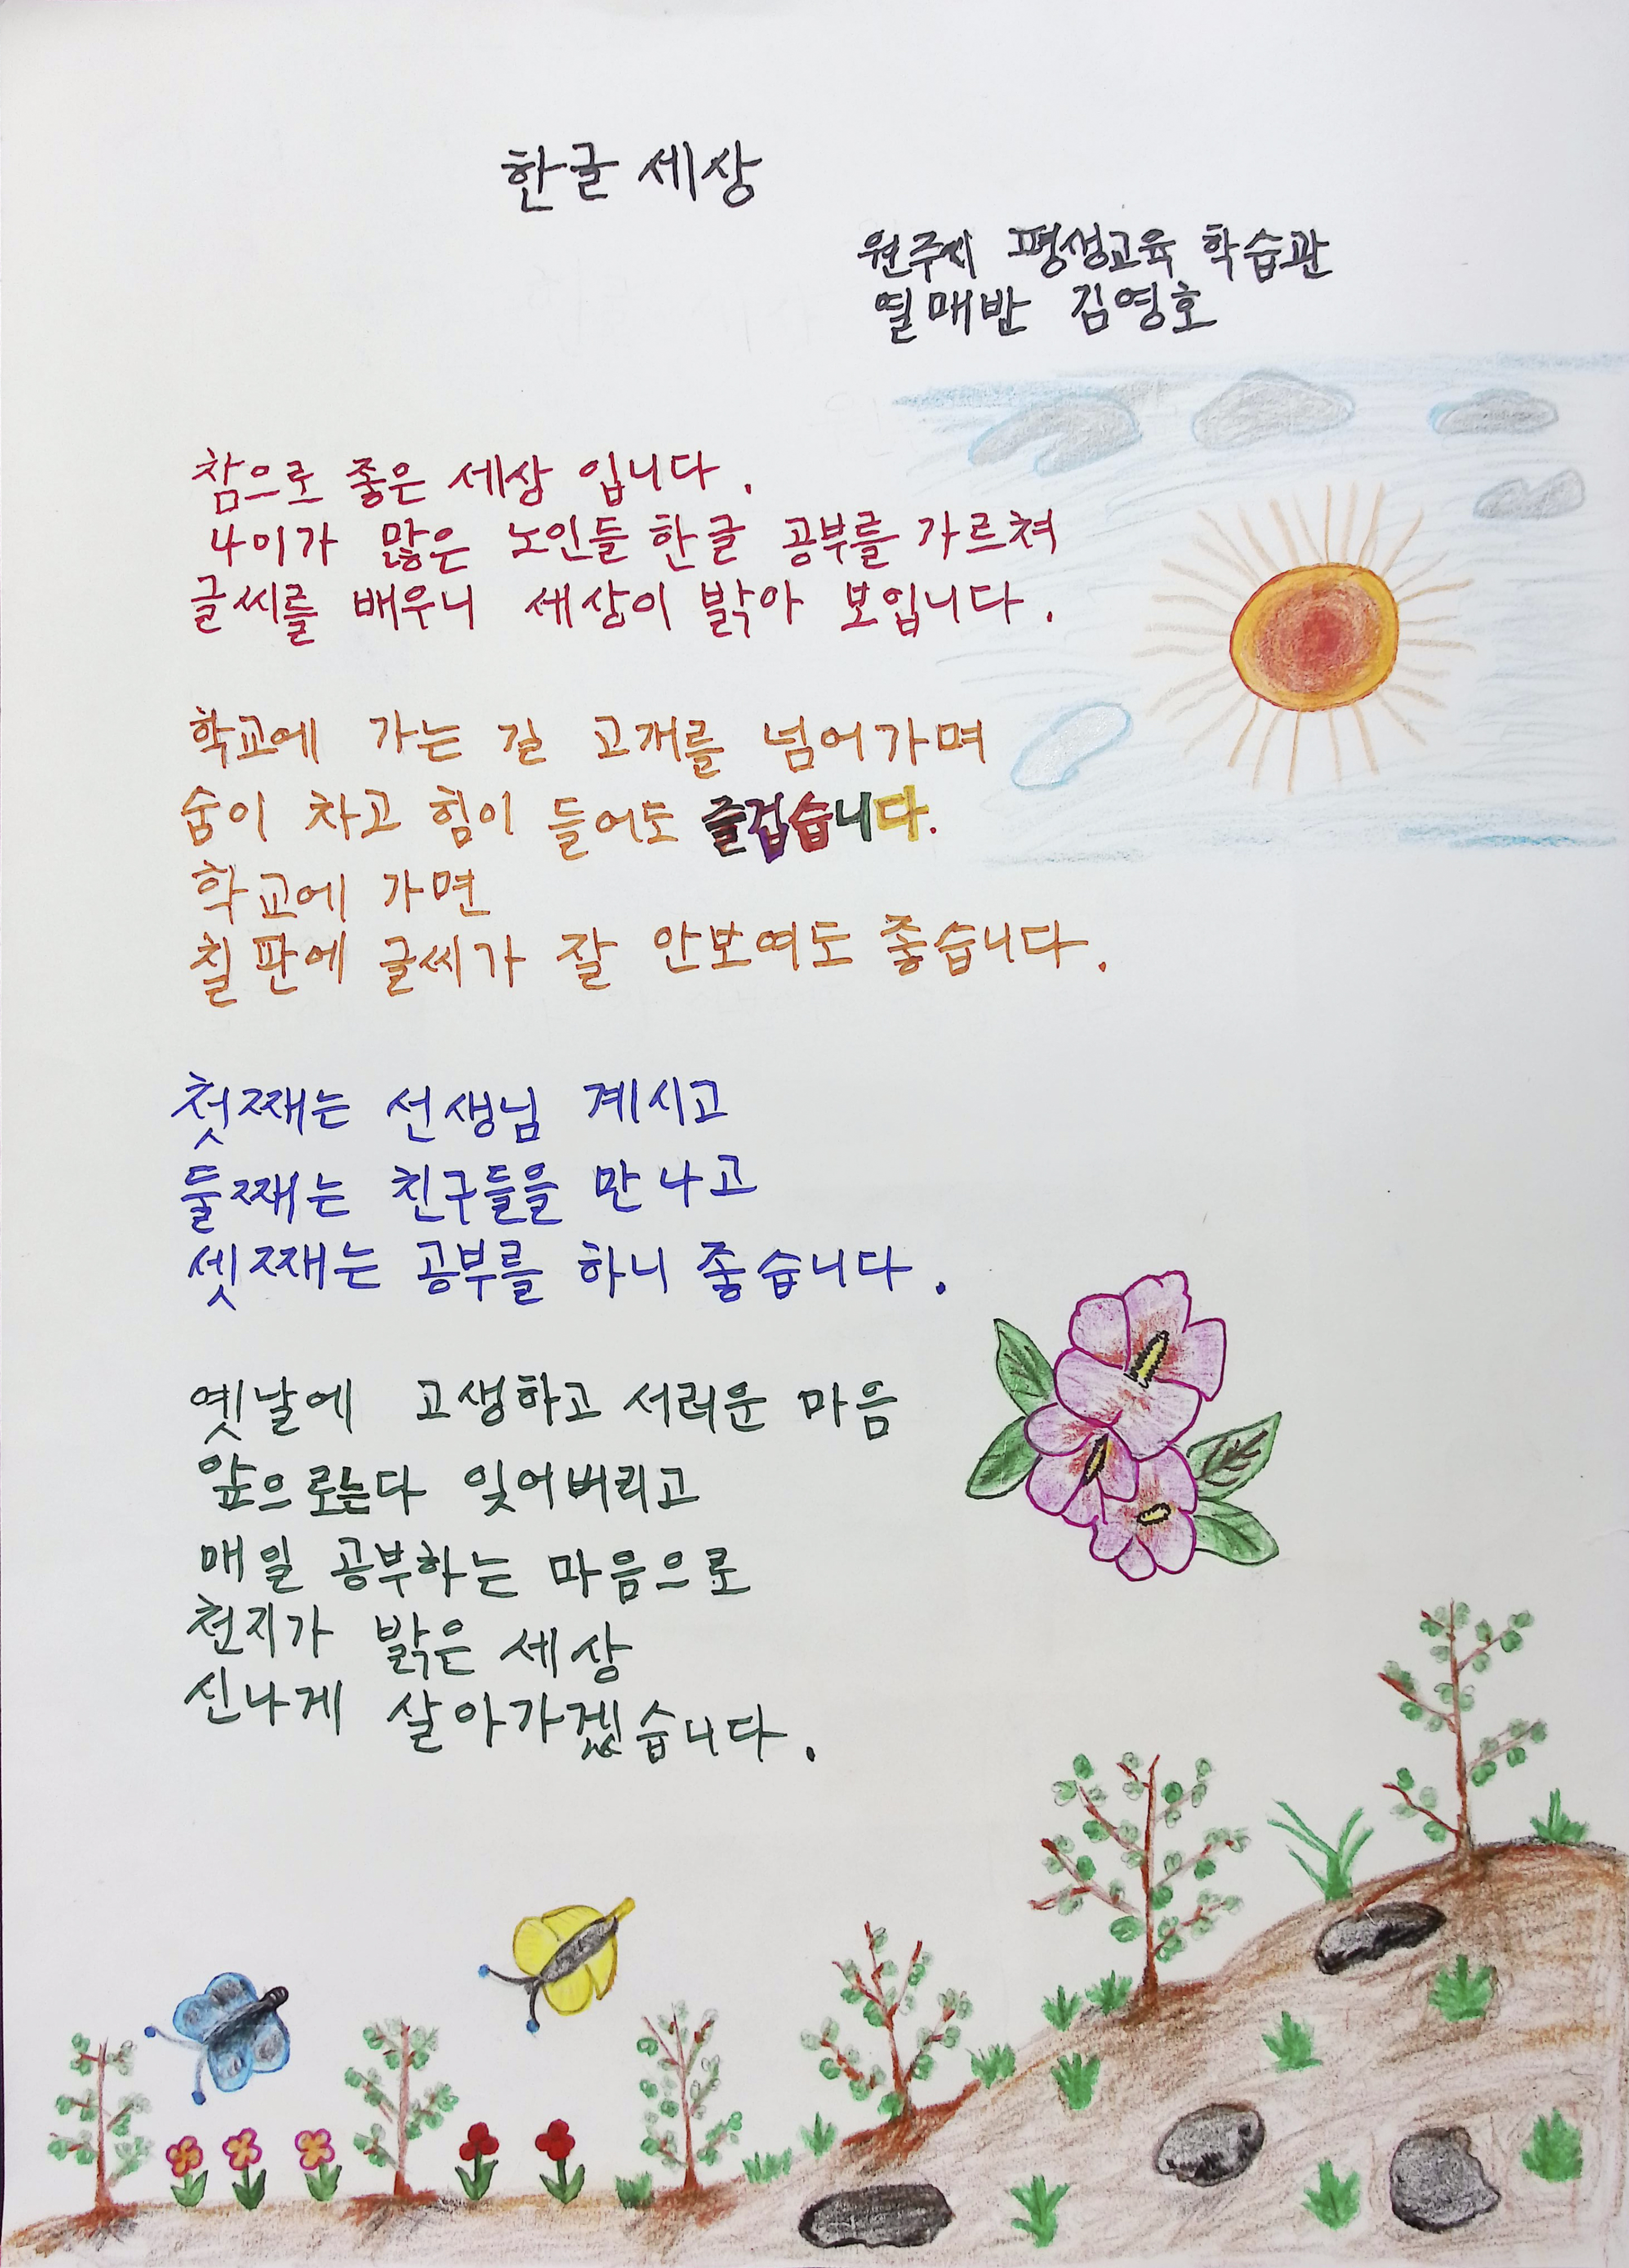 한글 세상
원주시 평생교육 학습관
열매반 김영호
참으로 좋은 세상 입니다.
나이가 많은 노인들 한글 공부를 가르쳐
글씨를 배우니 세상이 밝아 보입니다.
학교에 가는 길 고개를 넘어가며
숨이 차고 힘이 들어도 즐겁습니다.
학교에 가면
칠판에 글씨가 잘 안보여도 좋습니다.
첫째는 선생님 계시고
둘째는 친구들을 만나고
셋째는 공부를 하니 좋습니다.
옛날에 고생하고 서러운 마음
앞으로는다 잊어버리고
매일 공부하는 마음으로
천지가 밝은 세상
신나게 살아가겠습니다.